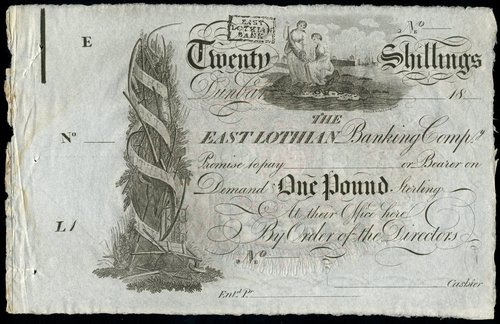 E
EAST
LOTHIAN
BANK
No
Twenty Shillings
Dunbar 18
THE
No EAST LOTHIAN Banking Compy
Promise to pay or Bearer on
Demand One Pound Sterling
At their Office here
L/ By Order of the Directors
No
Cashier
Entd. Pr.